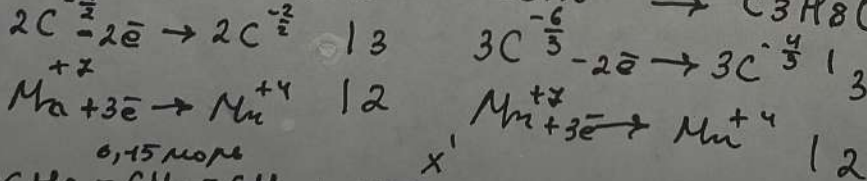 → C3H8O
2C^-2/2 - 2ē → 2C^-2/2 | 3
3C^-6/3 - 2ē → 3C^-4/3 | 3
Mn^+7 + 3ē → Mn^+4 | 2
Mn^+7 + 3ē → Mn^+4 | 2
0,15 моль
x